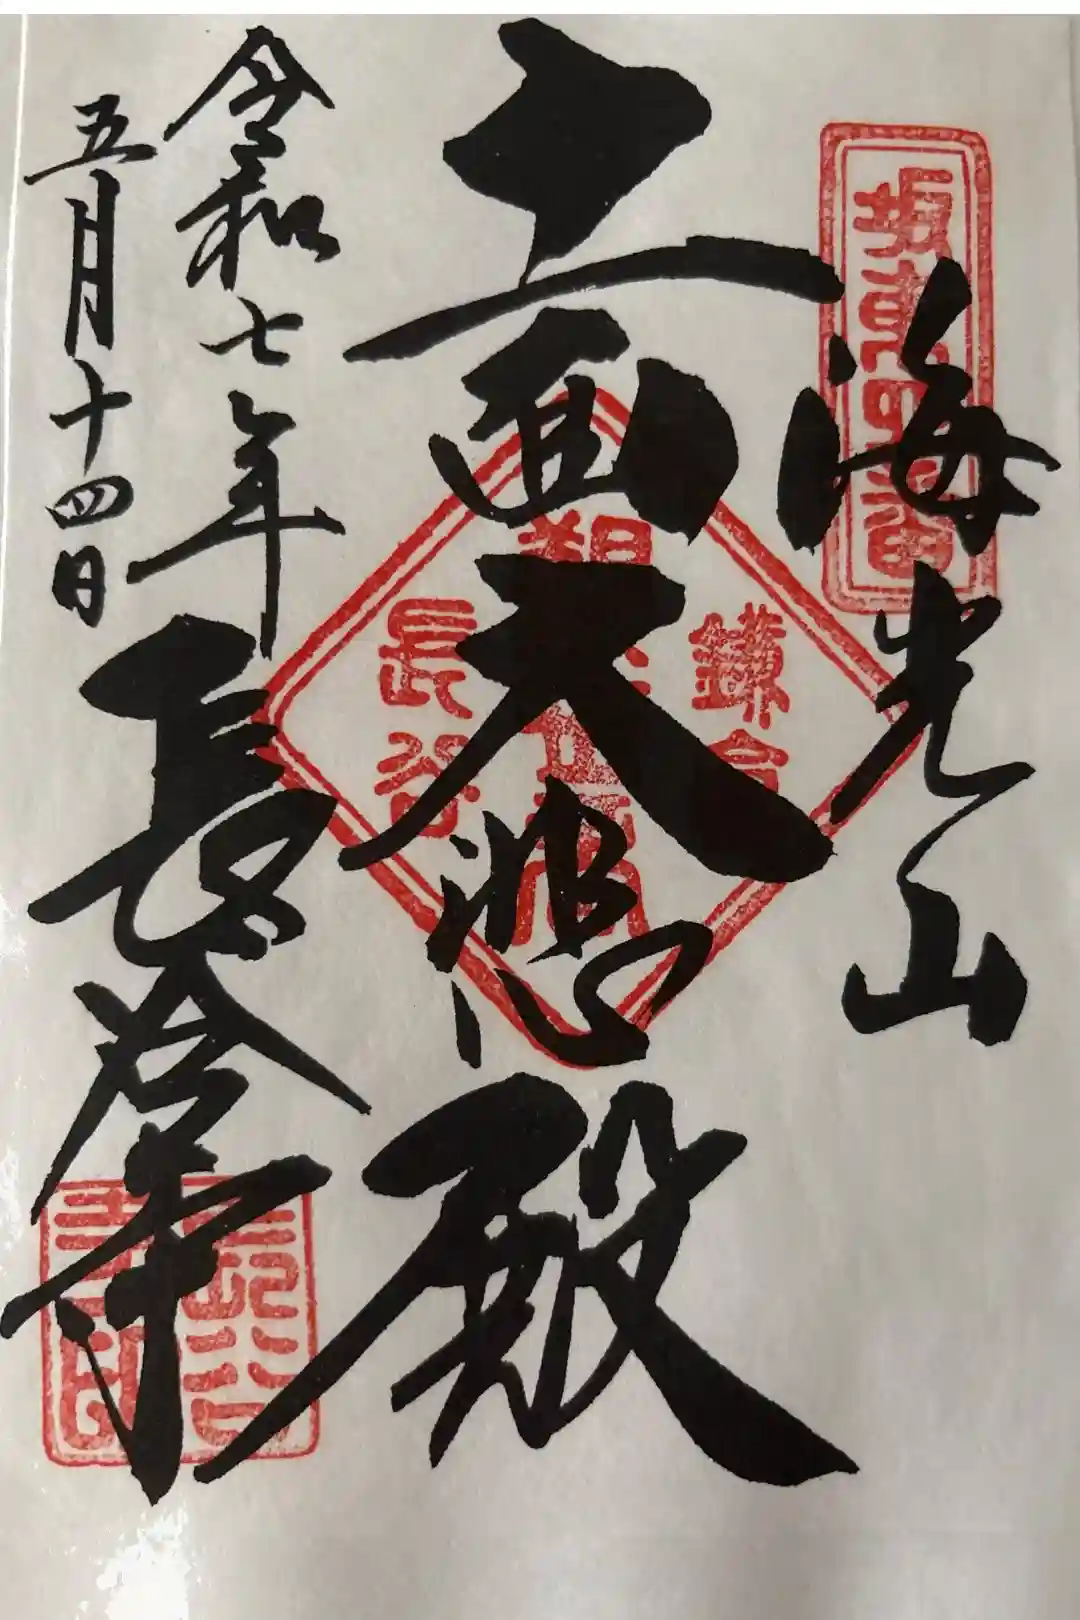 海光山
十一面大悲殿
令和七年
五月十四日
長谷寺
坂東四番
鎌倉
長谷
長谷
寺印